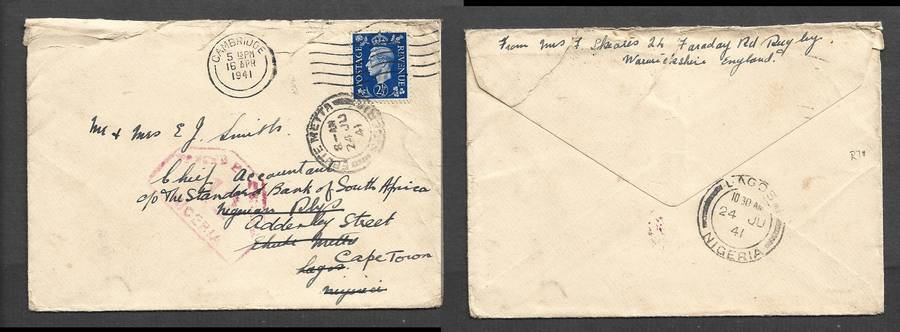 CAMBRIDGE
5 15 PM
16 APR
1941
POSTAGE REVENUE
2½
EBUTE METTA
8-AM
24 JU
41
NIGERIA
Mr & Mrs E J. Smith.
Chief Accountant
c/o The Standard Bank of South Africa
Nigerian Rlys
Adderley Street
Ebute Metta
Cape Town
Lagos.
Nigeria
NIGERIA
From Mrs F. Skeates 24 Faraday Rd Rugby.
Warwickshire England.
LAGOS
10 30 AM
24 JU
41
NIGERIA